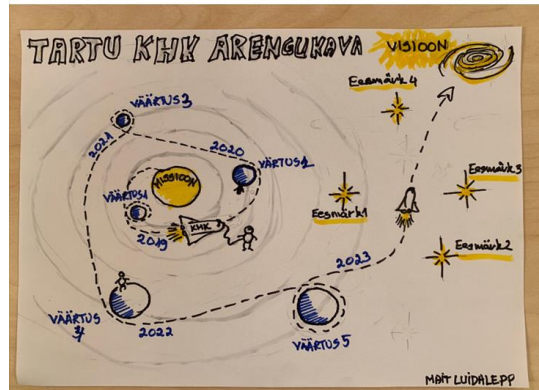 TARTU KHK ARENGUKAVA
VISIOON
Eesmärk 4
VÄÄRTUS 3
2021
2020
VÄRTUS 2
MISSIOON
VÄÄRTUS 1
Eesmärk 3
Eesmärk 1
KHK
2019
Eesmärk 2
2023
VÄÄRTUS
4
2022
VÄÄRTUS 5
MAIT LUIDALEPP